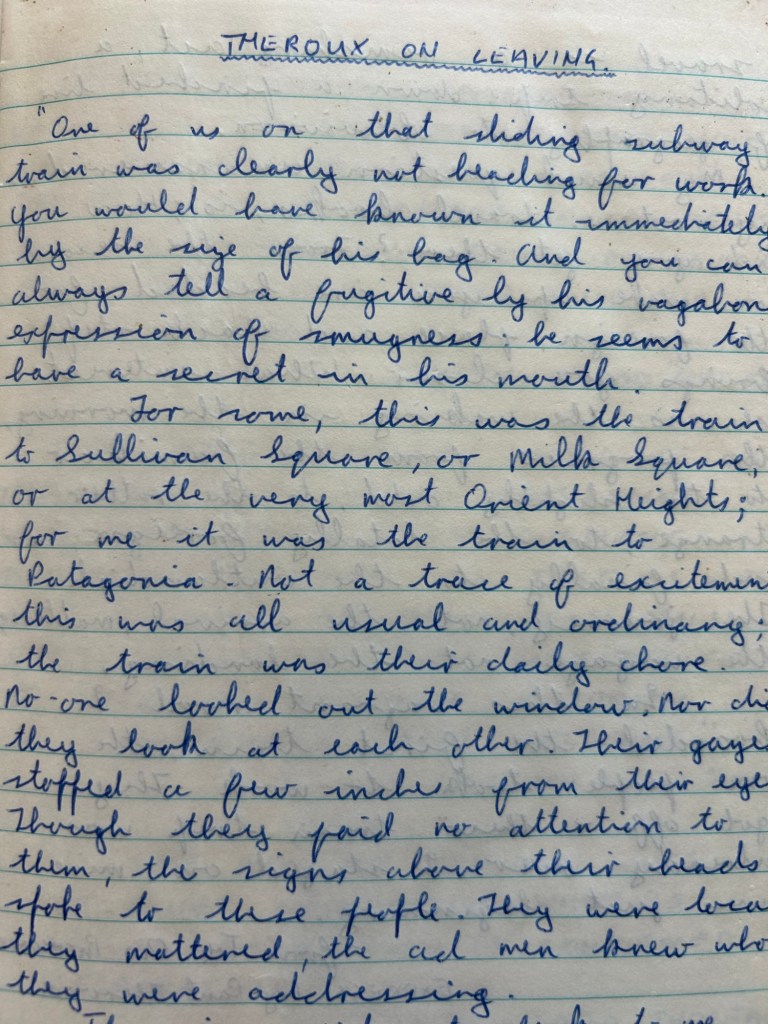 THEROUX ON LEAVING.
"One of us on that sliding subway
train was clearly not heading for work.
You would have known it immediately
by the size of his bag. And you can
always tell a fugitive by his vagabon
expression of smugness; he seems to
have a secret in his mouth.
For some, this was the train
to Sullivan Square, or Milk Square,
or at the very most Orient Heights;
for me it was the train to
Patagonia. Not a trace of excitemen
this was all usual and ordinary;
the train was their daily chore.
No-one looked out the window. Nor di
they look at each other. Their gazes
stopped a few inches from their eye
Though they paid no attention to
them, the signs above their heads
spoke to these people. They were loca
they mattered, the ad men knew who
they were addressing.